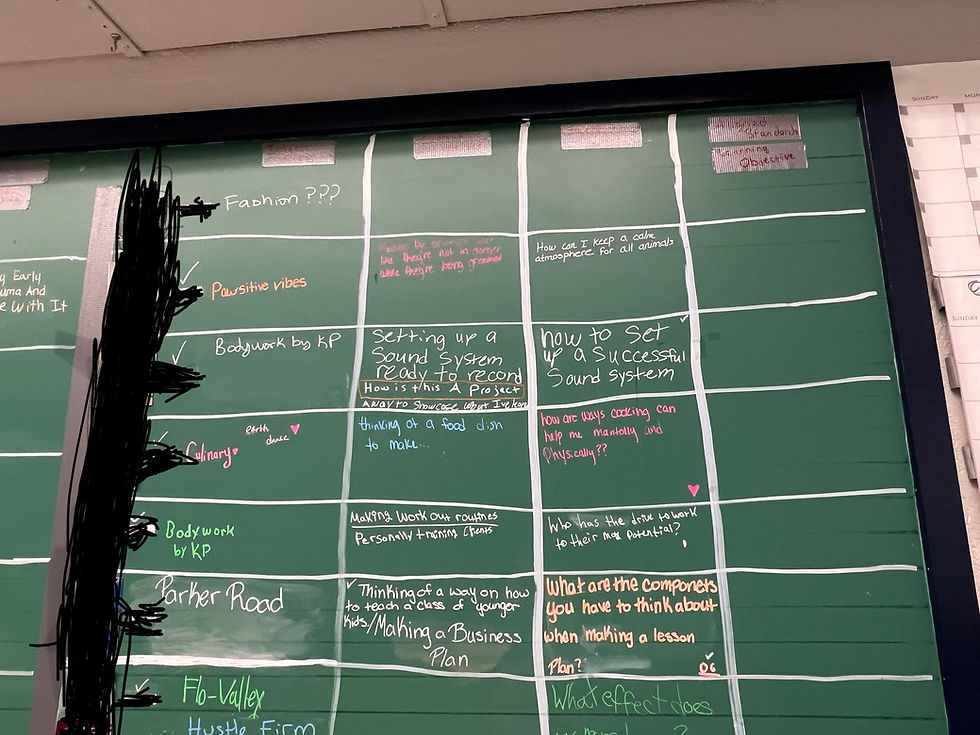 SUNDAY
MON
Standards
Learning
Objective
Fashion ???
g Early
uma And
e With It
Pawsitive vibes
like they're not in danger
while they're being groomed
How can I keep a calm
atmosphere for all animals
Bodywork by KP
Setting up a
Sound System
ready to record
How is this A Project
Away to Showcase What I've
how to set
up a successful
Sound system
Culinary
Birth
dance
thinking of a food dish
to make...
how are ways cooking can
help me mentally and
Physically??
Bodywork
by KP
Making Work out routines
Personally training Clients
Who has the drive to work
to their max Potential?
Parker Road
Thinking of a way on how
to teach a class of younger
kids/Making a Business
Plan
What are the componets
you have to think about
when making a lesson
Plan?
Flo-Valley
Hustle Firm
What effect does
SUNDAY